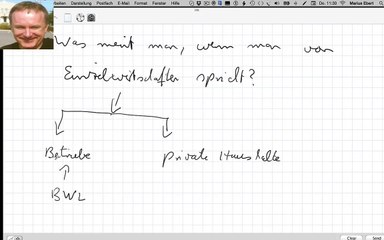 arbeiten Darstellung Postfach E-Mail Format Fenster Hilfe Do. 11:00 Marius Ebert
Was meint man, wenn man von
Einzelwirtschaften spricht?
Betriebe Private Haushalte
BWL
Clear Send